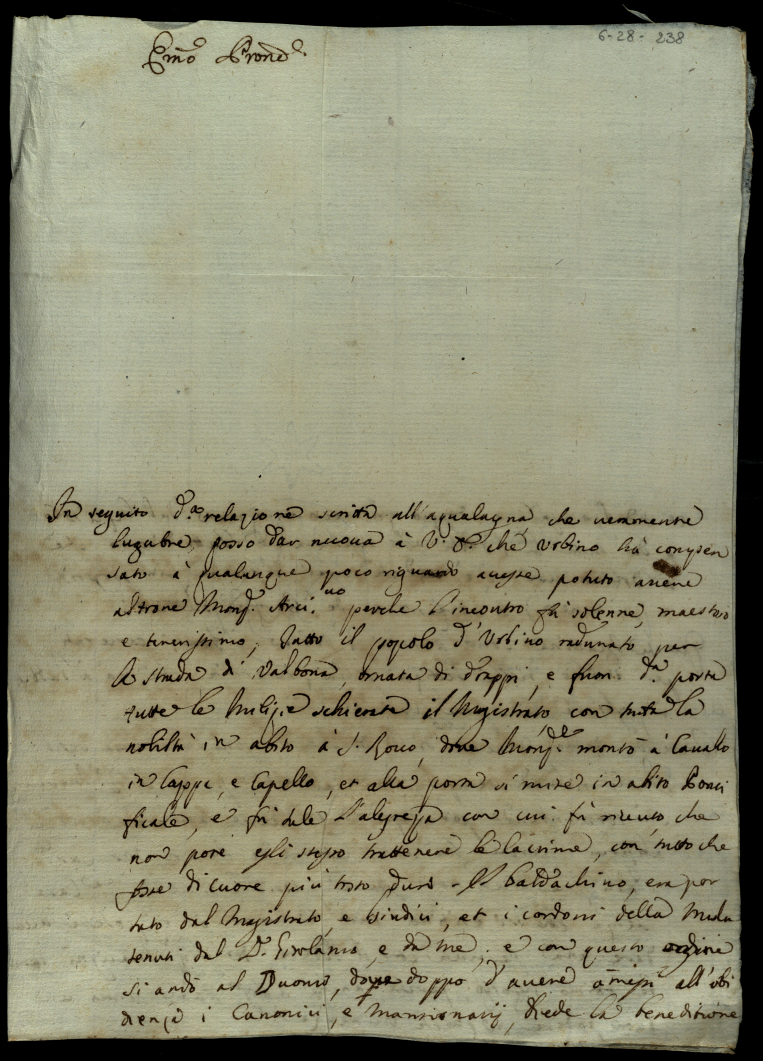 6-28- 238
Em̃o Prone
In seguito d.a relazione scritta all'aqualagna che veramente
lugubre, posso dar nuova à V. E. che Urbino hà conpen
sato à qualunque poco riguardo avesse potuto avere
altrove Monsig.r Arci.vo perche l'incontro fù solenne, maestoso
e tenerissimo, tutto il popolo d'Urbino radunato per
la strada di Valbona, ornata di drappi, e fuori d.a porta
tutte le Milizie schierate il Magistrato con tutta la
nobiltà in abito à S. Rocco, dove Monsig.r montò à Cavallo
in Cappa, e Capello, et alla porta si mise in abito Ponti
ficale, e fù tale l'alegrezza con cui fù ricevuto che
non potè egli stesso trattenere le lacrime, con tutto che
fosse di cuore più tosto duro. Il baldachino, era por
tato dal Magistrato, e Giudici, et i cordoni della Mula
tenuti dal D. Girolamo, e da me; e con questo ordine
si andò al Duomo, dove doppo d'avere amessi all'obi
dienza i Canonici, e Mansionarij, diede la benedizione